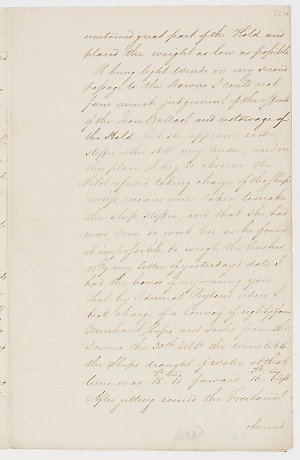 unstowed great part of the Hold and
placed the weight as low as possible
It being light Winds on my second
passage to the Downs I could not
form much judgement of the effects
of the Iron Ballast and restowage of
the Hold but she appears rather
stiffer altho still very tender, and in
this place I beg to observe the
Pilot refused taking charge of the Ship
unless means were taken to make
the Ship stiffer, and that she had
more Men to work her as he found
it impossible to weigh the Anchor.
By my letter of yesterday's date I
had the honor of informing you
that by Admiral orders I
took charge of a Convoy of
Merchant Ships and from the
Downs the 30th the Wind
the Ships draught of water at that
time was forward
After getting round the Foreland I
observed